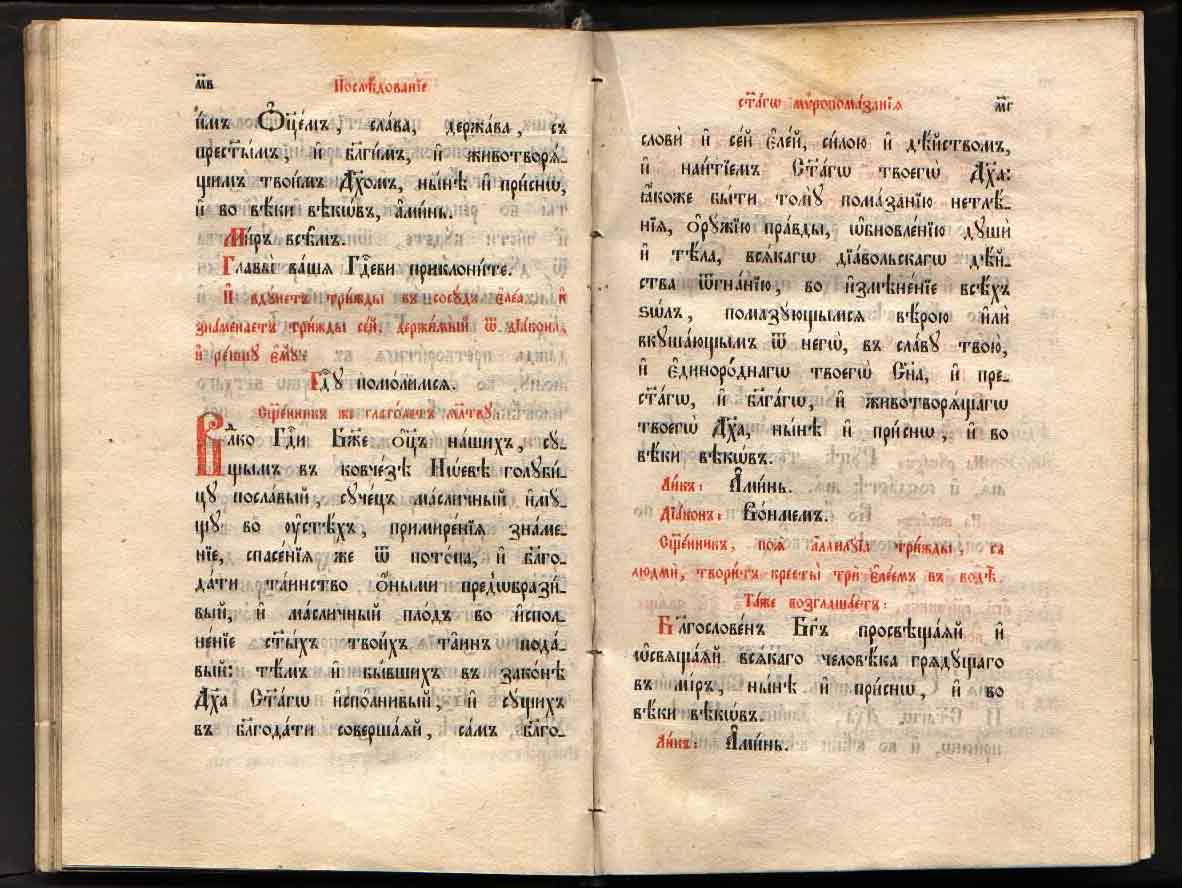 м҃в Послѣ́дованїе
и́мъ Ѻ҆ц҃е́мъ, сла́ва, держа́ва, съ
прест҃ы́мъ, и҆ бл҃ги́мъ, и҆ животворѧ́-
щимъ твои́мъ Дх҃омъ, ны́нѣ и҆ при́снѡ,
и҆ во вѣ́ки вѣкѡ́въ, а҆ми́нь.
Ми́ръ всѣ̑мъ.
Главы̑ ва́шѧ Гдⷭ҇еви приклони́те.
И҆ дꙋ́нетъ три́жды въ сосꙋ́дъ є҆ле́а, и҆
зна́менаетъ три́жды се́й, держи́мый ѿ дїа́кона,
и҆ ре́кшꙋ є҆мꙋ̀:
Гдⷭ҇ꙋ помо́лимсѧ.
Сщ҃е́нникъ же глаго́летъ мл҃твꙋ:
Влⷣко Гдⷭ҇и Бж҃е ѻ҆ц҃ъ на́шихъ, сꙋ́-
щымъ въ ковче́зѣ Нѡ́евѣ голꙋби́-
цꙋ посла́вый, сꙋче́цъ ма́сличный и҆мꙋ́-
щꙋ во ᲂу҆стѣ́хъ, примире́нїѧ зна́ме-
нїе, спасе́нїѧ же ѿ пото́па, и҆ бл҃го-
да́ти та́инство ѻ҆́ными предѡбрази́-
вый, и҆ ма́сличный пло́дъ во и҆спол-
не́нїе ст҃ы́хъ твои́хъ та́инъ пода́-
вый: тѣ́мъ и҆ бы́вшихъ въ зако́нѣ
Дх҃а Ст҃а́гѡ и҆спо́лнивый, и҆ сꙋ́щихъ
въ бл҃года́ти соверша́ѧй, са́мъ бл҃го-
ст҃а́гѡ мѵропома́занїѧ м҃г
словѝ и҆ се́й є҆ле́й, си́лою и҆ дѣ́йствомъ,
и҆ наи́тїемъ Ст҃а́гѡ твоегѡ̀ Дх҃а:
ꙗ҆́коже бы́ти томꙋ̀ пома́занїю нетлѣ́-
нїѧ, ѻ҆рꙋ́жїю пра́вды, ѡ҆бновле́нїю дꙋшѝ
и҆ тѣ́ла, всѧ́кагѡ дїа́вольскагѡ дѣ́й-
ства ѿгна́нїю, во и҆змѣне́нїе всѣ́хъ
ѕѡ́лъ, помазꙋ́ющымсѧ вѣ́рою и҆лѝ
вкꙋша́ющымъ ѿ негѡ̀, въ сла́вꙋ твою̀,
и҆ є҆диноро́днагѡ твоегѡ̀ Сн҃а, и҆ пре-
ст҃а́гѡ, и҆ бл҃га́гѡ, и҆ животворѧ́щагѡ
твоегѡ̀ Дх҃а, ны́нѣ и҆ при́снѡ, и҆ во
вѣ́ки вѣкѡ́въ.
Ли́къ: А҆ми́нь.
Дїа́конъ: Во́нмемъ.
Сщ҃е́нникъ, поѧ̀ а҆ллилꙋ́їа три́жды, съ
людьмѝ, твори́тъ кресты̀ трѝ є҆ле́емъ въ водѣ̀.
Та́же возглаша́етъ:
Бл҃гослове́нъ Бг҃ъ просвѣща́ѧй и҆
ѡ҆свѧща́ѧй всѧ́каго человѣ́ка грѧдꙋ́щаго
въ мі́ръ, ны́нѣ и҆ при́снѡ, и҆ во
вѣ́ки вѣкѡ́въ.
Ли́къ: А҆ми́нь.